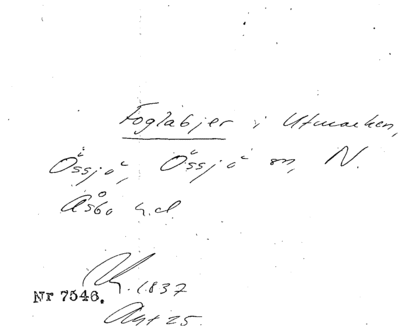 Foglabjer i Utmarken,
Össjö, Össjö sn, N.
Åsbo hd.
1837
Nr 7546.
Akt 25.